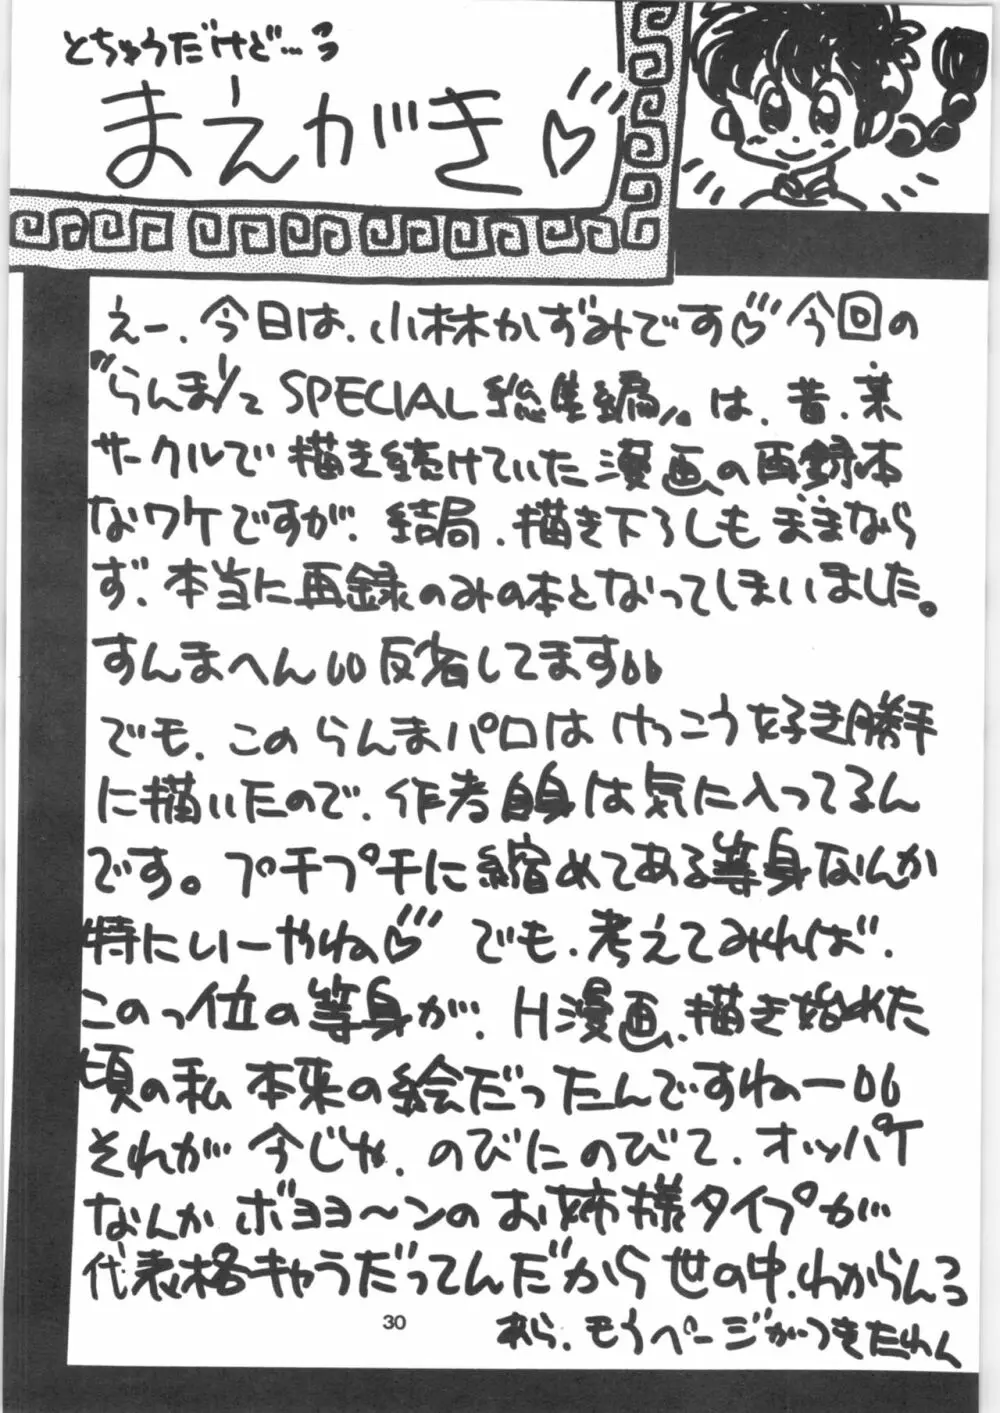 とちゅうだけど…っ
まえがき♡
えー、今日は、小林かずみです♡今回の
"らんま1/2 SPECIAL総集編"は、昔、某
サークルで描き続けていた漫画の再録本
なワケですが、結局、描き下ろしもままなら
ず、本当に再録のみの本となってしまいました。
すんまへん 反省してます
でも、このらんまパロはけっこう好き勝手
に描いたので、作者自身は気に入ってるん
です。プチプチに縮めてある等身なんか
特にいーやね♡でも、考えてみれば、
このっ位の等身が、H漫画、描き始めた
頃の私本来の絵だったんですねー
それが今じゃ、のびにのびて、オッパイ
なんかボヨヨ〜ンのお姉様タイプが
代表格キャラだってんだから世の中、わからんっっ
あら、もうページがつきたわん
30